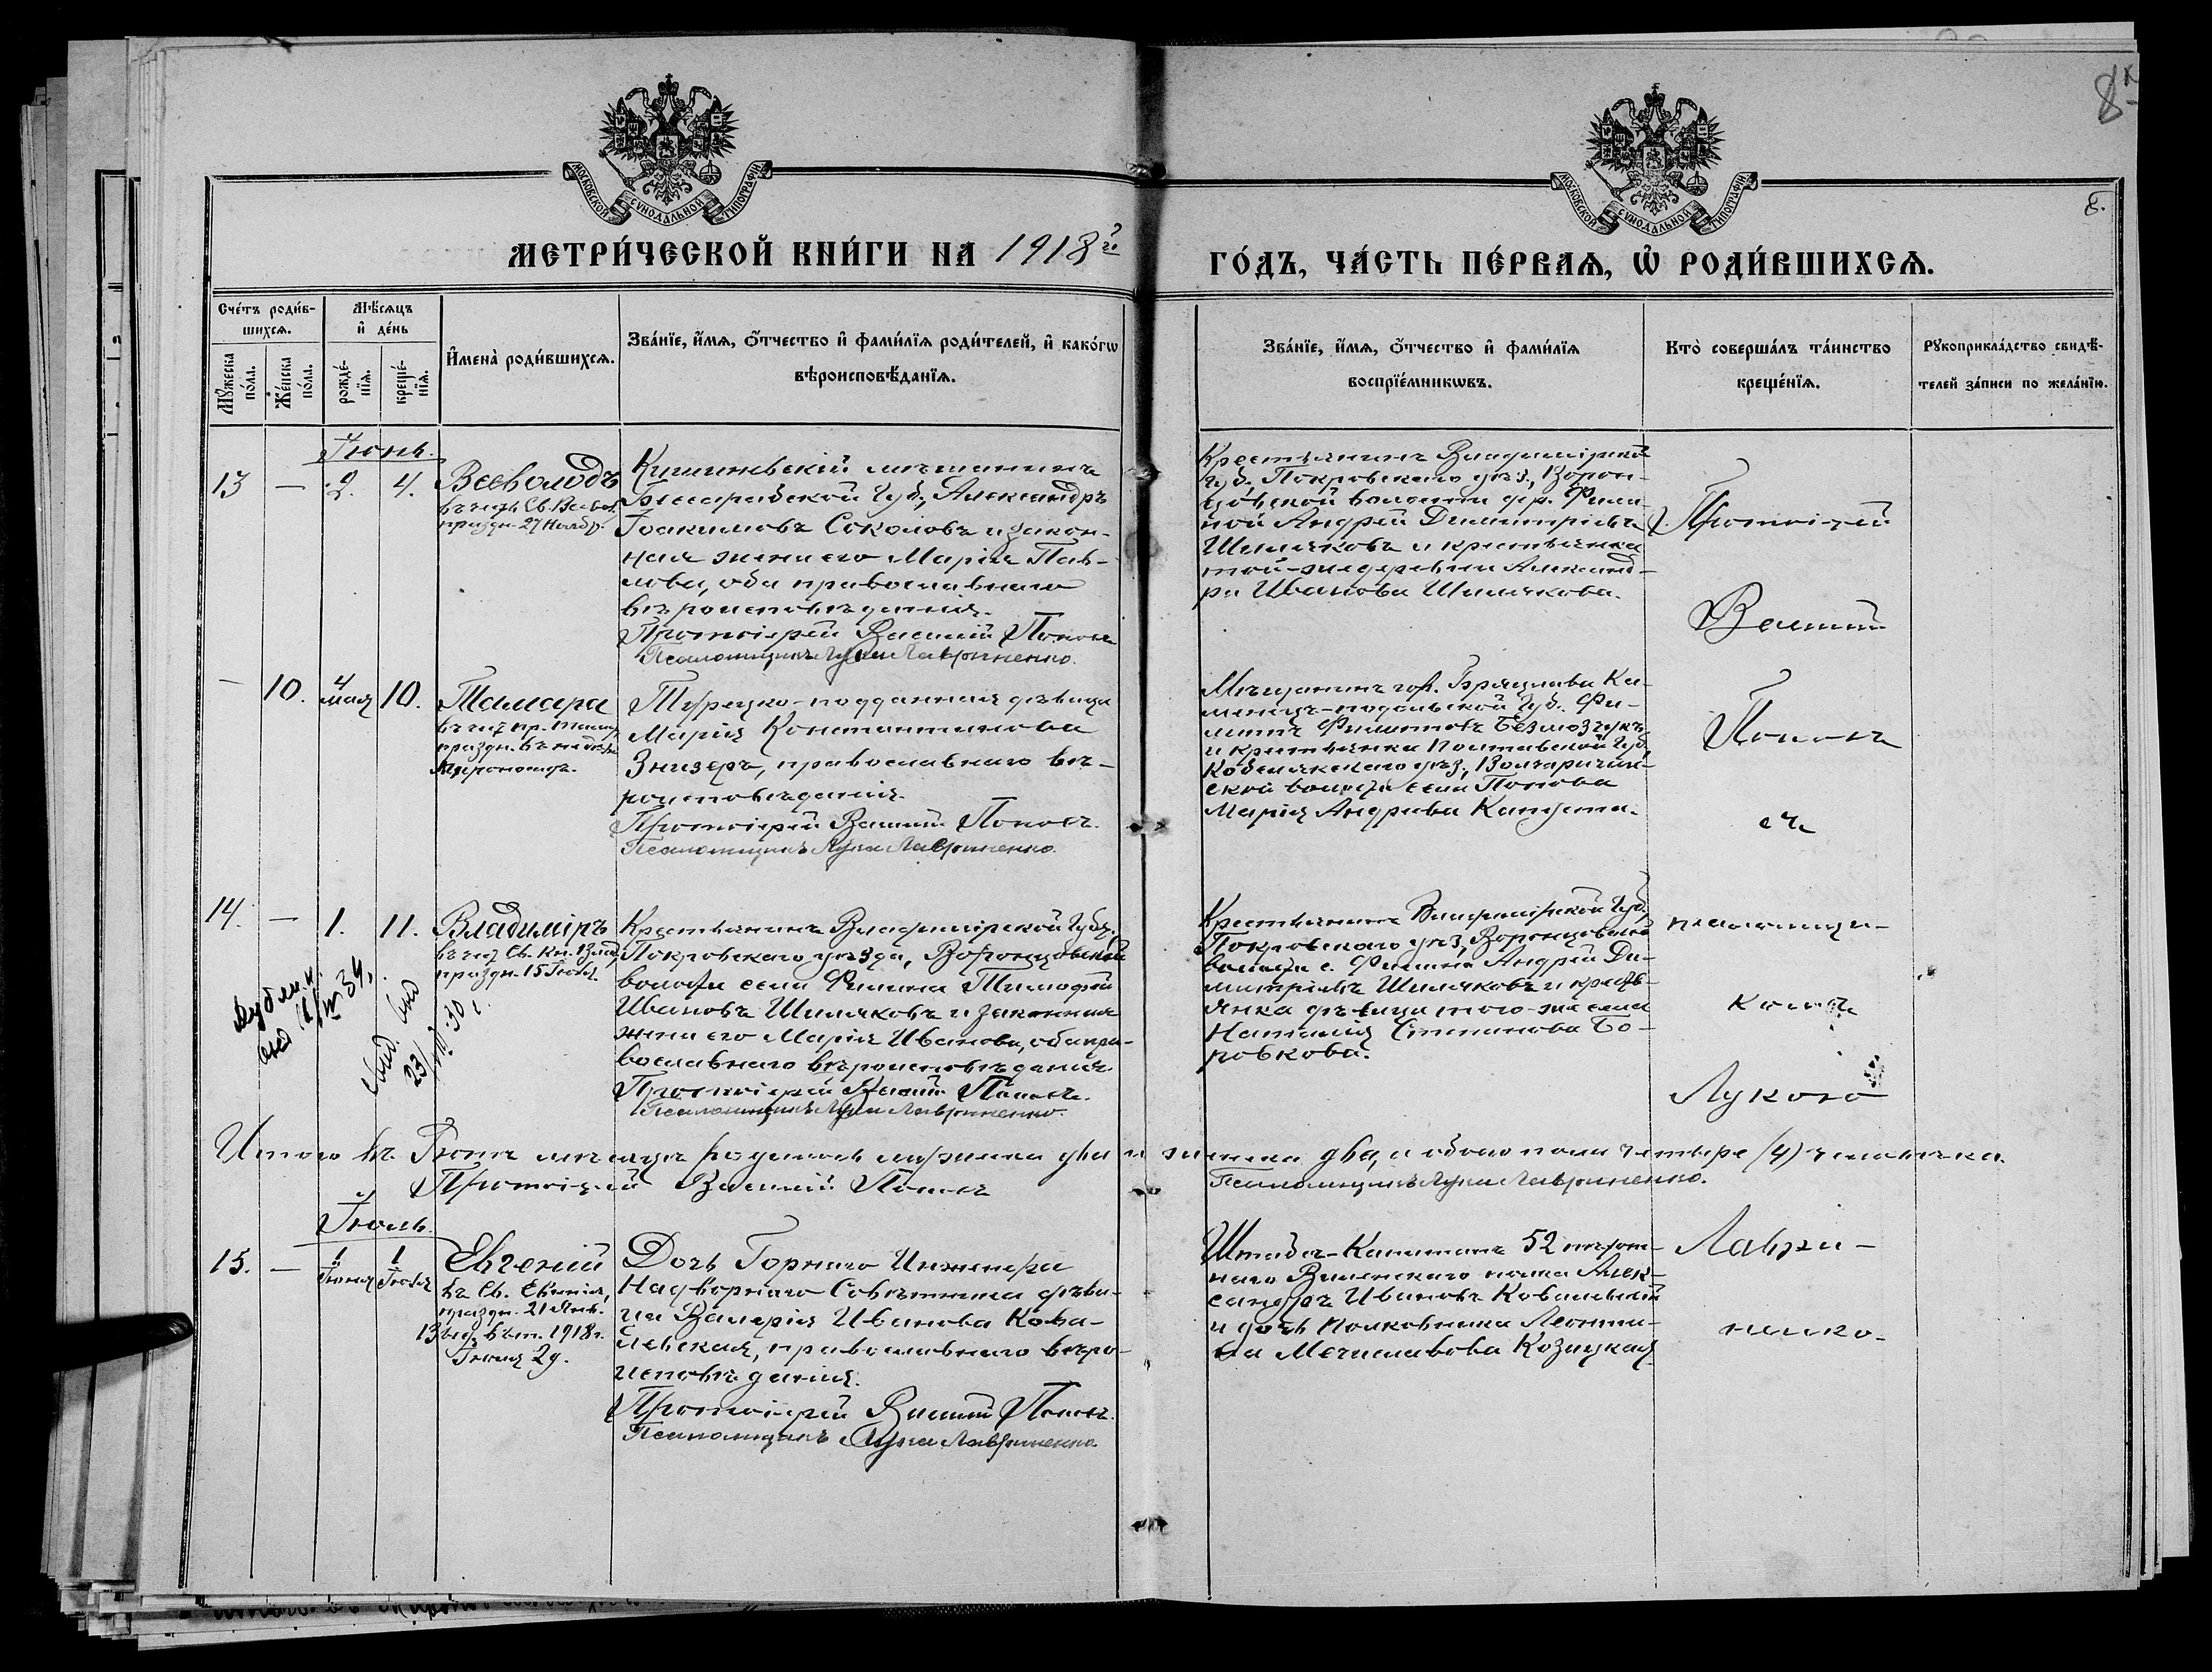 8
8.
МОСКОВСКОЙ СѴНОДАЛЬНОЙ ТИПОГРАФІИ
МОСКОВСКОЙ СѴНОДАЛЬНОЙ ТИПОГРАФІИ
МЕТРИ́ЧЕСКОЙ КНИ́ГИ НА 1918й
ГО́ДЪ, ЧА́СТЬ ПЕ́РВАѦ, Ѡ҆ РОДИ́ВШИХСѦ.
Сче́тъ роди́в-
шихсѧ.
Мꙋ́жеска по́ла.
Же́нска по́ла.
Мѣ́сѧцъ
и҆ де́нь
рожде́-
нїѧ.
креще́-
нїѧ.
И҆мена̀ роди́вшихсѧ.
Зва́нїе, и҆́мѧ, ѻ҆́тчество и҆ фами́лїѧ роди́телей, и҆ како́гѡ
вѣроисповѣ́данїѧ.
Зва́нїе, и҆́мѧ, ѻ҆́тчество и҆ фами́лїѧ
воспрїе́мникѡвъ.
Кто̀ соверша́лъ та́инство
креще́нїѧ.
Рꙋкоприкла́дство свидѣ́-
телей за́писи по жела́нїю.
Іюнь.
13 — 2. 4. Всеволодъ
въ честь Св. Всевол.
праздн. 27 Ноябр.
Кишиневскій мѣщанинъ
Бессарабской губ., Александръ
Іоакимовъ Соколовъ и закон-
ная жена его Марія Пав-
лова, оба православнаго
вѣроисповѣданія.
Протоіерей Василій Поповъ
Псаломщикъ Лука Лавриненко.
Крестьянинъ Владимірской
губ., Покровскаго уѣз., Ворон-
цовской волости дер. Фили-
ной Андрей Димитріевъ
Шишаковъ и крестьянка
той-же деревни Александ-
ра Иванова Шишакова.
— 10. 4 мая 10. Тамара
въ честь пр. Тамар.
праздн. въ недѣлю
Мѵроносицъ.
Турецко-подданная дѣвица
Марія Константинова
Знизеръ, православнаго вѣ-
роисповѣданія.
Протоіерей Василій Поповъ.
Псаломщикъ Лука Лавриненко.
Мѣщанинъ гор. Брацлава Ка-
менецъ-подольской Губ. Фи-
липпъ Филипповъ Безмозчукъ
и крестьянка Полтавской губ.
Кобелякскаго уѣз.,
ской волости села Попова
Марія Андреева Капуста.
14. — 1. 11. Владиміръ
въ честь Св. кн. Влад.
праздн. 15 Іюля.
Крестьянинъ Владимірской Губ.,
Покровскаго уѣзда, Воронцовской
волости села Филина Тимофей
Ивановъ Шишаковъ и законная
жена его Марія Иванова, оба пра-
вославнаго вѣроисповѣданія.
Протоіерей Василій Поповъ.
Псаломщикъ Лука Лавриненко.
Крестьянинъ Владимірской Губ.,
Покровскаго уѣз., Воронцовской
волости с. Филина Андрей Ди-
митріевъ Шишаковъ и кресть-
янка дѣвица того-же села
Наталія Степанова Бо-
ровкова.
Протоіерей
Василій
Поповъ
съ
псаломщи-
комъ
Лукою
Итого въ Іюнѣ мѣсяцѣ родилось мужеска два и женска два, а обоего пола четыре /4/ человѣка.
Протоіерей Василій Поповъ
Псаломщикъ Лука Лавриненко.
Іюль.
15. — 1 Іюня 1 Іюля Евгеній
въ Св. Евгенія,
праздн. 21 Янв.
1918 г.
Іюня 2 д.
Дочь Горнаго Инженера
Надворнаго Совѣтника дѣви-
ца Валерія Иванова Кова-
левская, православнаго вѣро-
исповѣданія.
Протоіерей Василій Поповъ.
Псаломщикъ Лука Лавриненко.
Штабсъ-Капитанъ 52 пѣхот-
наго Виленскаго полка Алек-
сандръ Ивановъ Ковалевскій
и дочь Полковника Леони-
да Мечиславова Козицкая.
Лаври-
ненко.